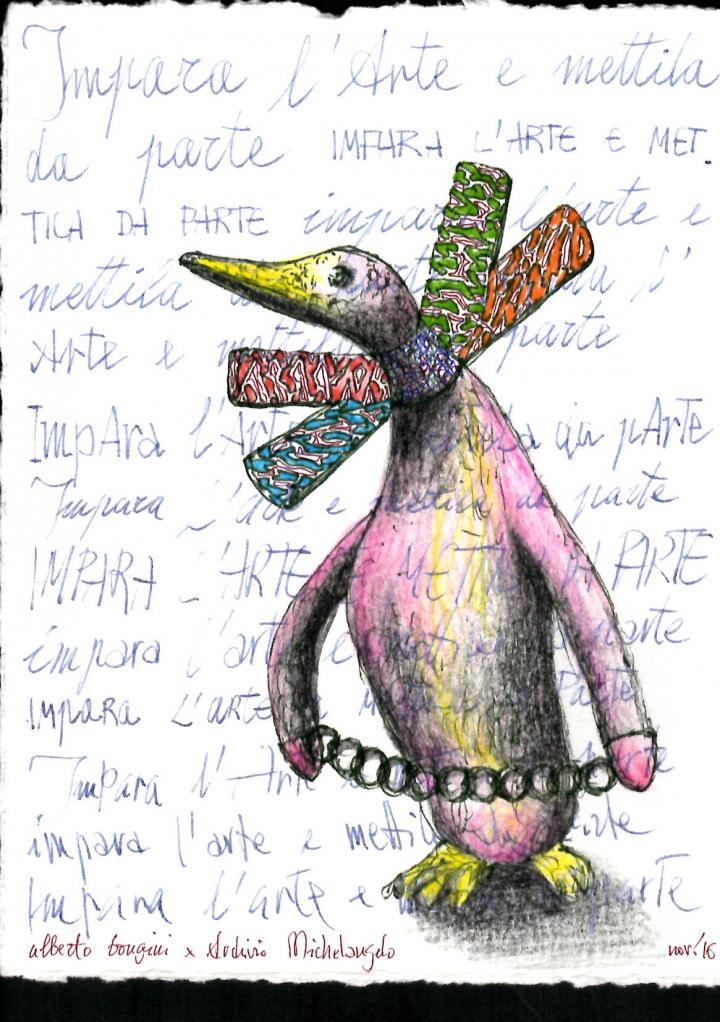 Impara l'Arte e mettila
da parte IMPARA L'ARTE E MET.
TICA DA PARTE impara l'arte e
mettila l'
Arte e mettila parte
ImpAra l'Art da pArte
Impara e da parte
IMPARA L'ARTE E METTI DA PARTE
impara l'art e parte
IMPARA L'ARTE PARTE
Impara l'Ar
impara l'arte e mettil
Impara l'arte e parte
alberto bongini x Archivio Michelangelo nov.'16